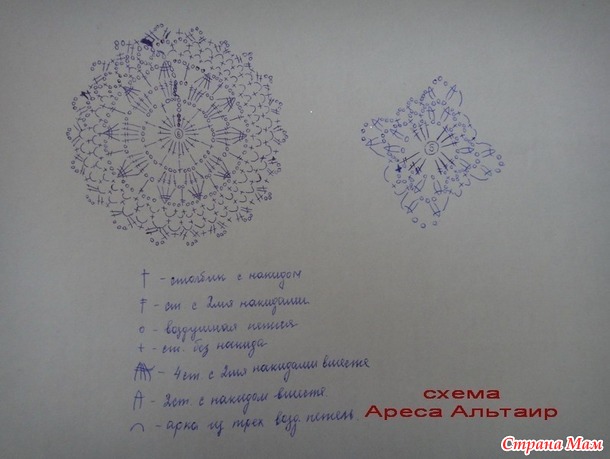 6
5
† - столбик с накидом
ст с 2мя накидами
о - воздушная петля
+ - ст. без накида
- 4ст. с 2мя накидами вместе
- 2ст. с накидом вместе.
⌒ - арка из трех возд. петель.
схема
Ареса Альтаир
Страна Мам